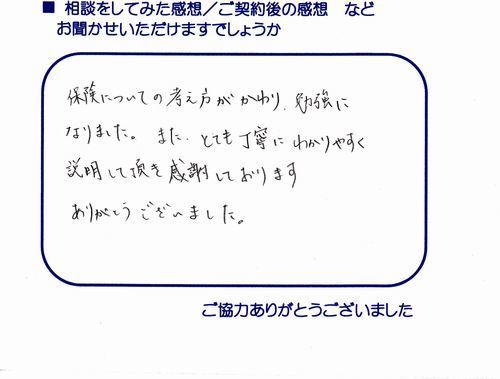 ■ 相談をしてみた感想／ご契約後の感想 など
お聞かせいただけますでしょうか
保険についての考え方がかわり、勉強に
なりました。また、とても丁寧にわかりやすく
説明して頂き感謝しております
ありがとうございました。
ご協力ありがとうございました